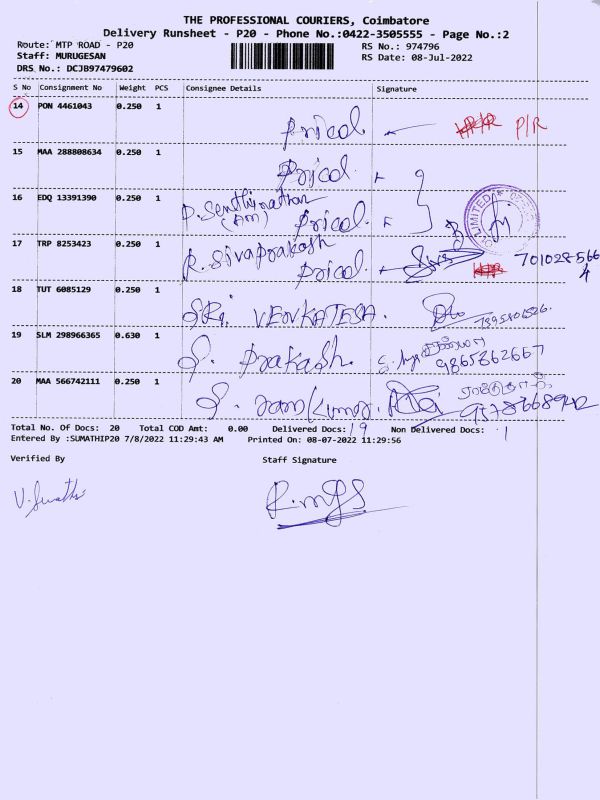 THE PROFESSIONAL COURIERS, Coimbatore
Delivery Runsheet - P20 - Phone No.:0422-3505555 - Page No.:2
Route: MTP ROAD - P20
RS No.: 974796
Staff: MURUGESAN
RS Date: 08-Jul-2022
DRS No.: DCJB97479602
S No Consignment No Weight PCS Consignee Details Signature
14 PON 4461043 0.250 1
Pricol P/R
15 MAA 288808634 0.250 1
Pricol
16 EDQ 13391390 0.250 1
P. Senthinathan
(AM) Pricol
LIMITED
17 TRP 8253423 0.250 1
R. Sivaprakash
Pricol 701028566
4
18 TUT 6085129 0.250 1
SRi. VENKATESA.
19 SLM 298966365 0.630 1
S. Prakash. 9865862667
20 MAA 566742111 0.250 1
S. ramkumar.
Total No. Of Docs: 20 Total COD Amt: 0.00 Delivered Docs: 19 Non Delivered Docs: 1
Entered By :SUMATHIP20 7/8/2022 11:29:43 AM Printed On: 08-07-2022 11:29:56
Verified By Staff Signature